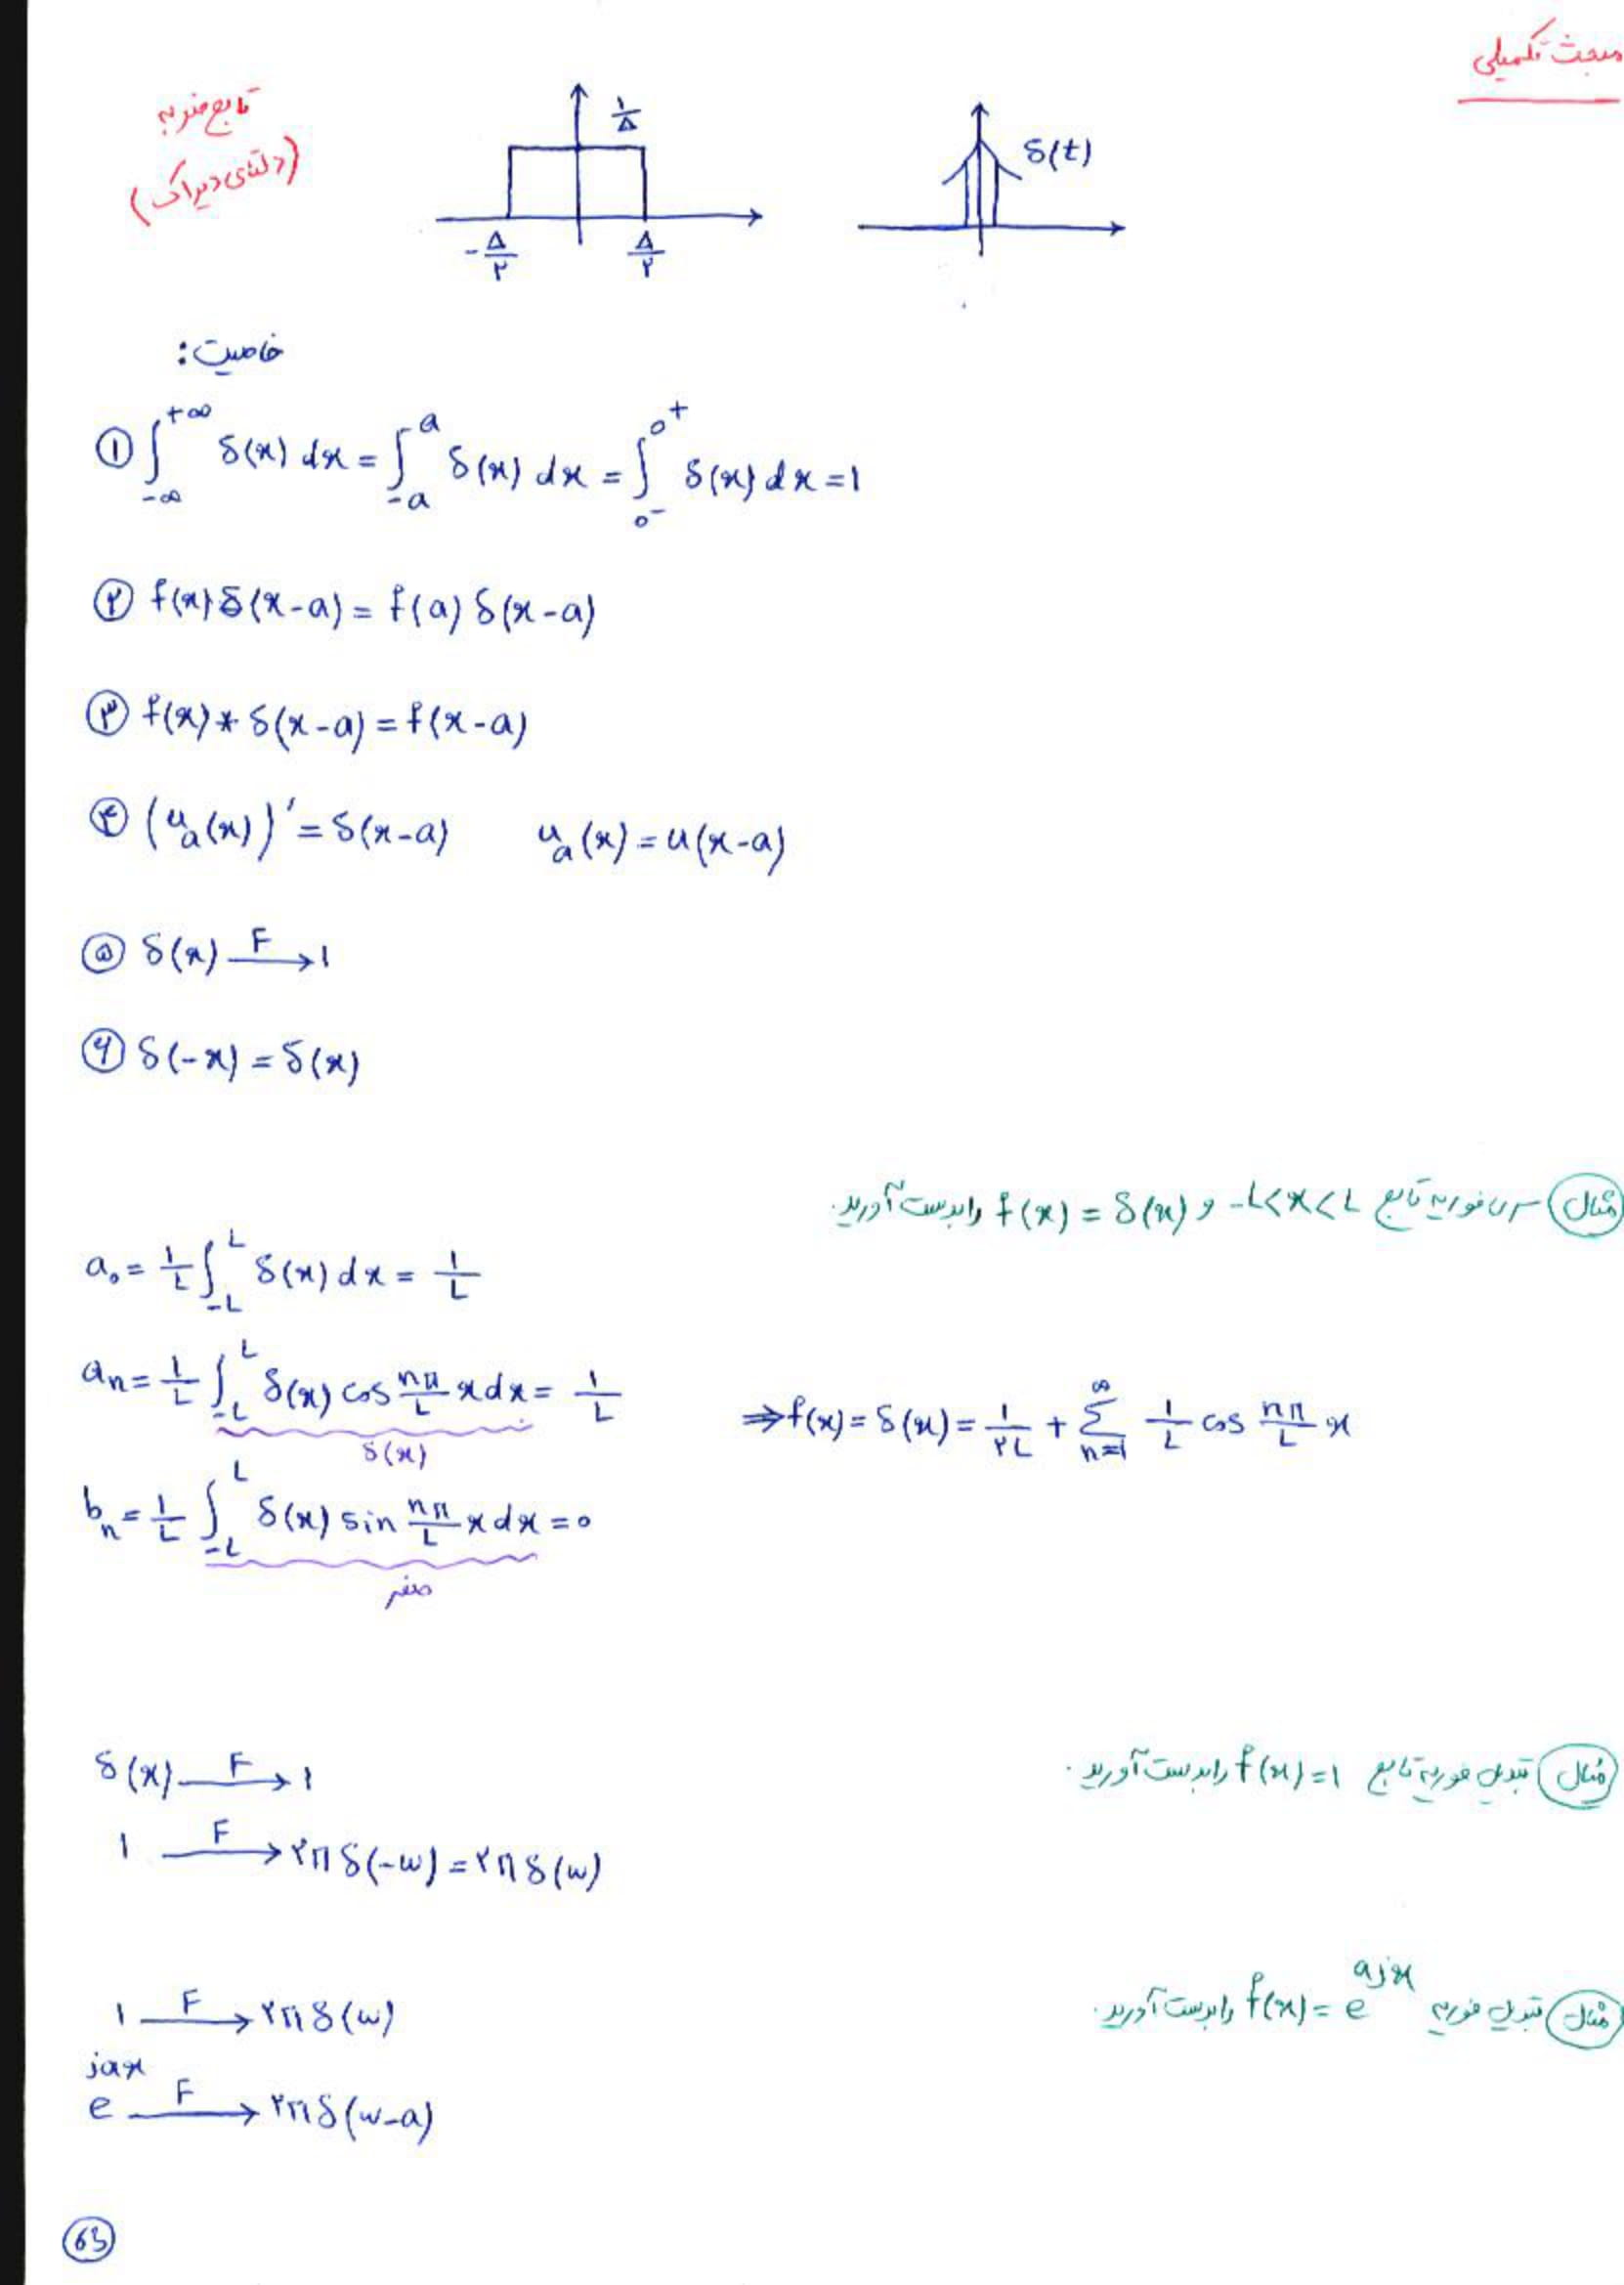 مبحث تکمیلی
تابع ضربه
(دلتای دیراک)
۱/Δ
-Δ/۲ Δ/۲
δ(t)
خاصیت:
① ∫_{-∞}^{+∞} δ(x) dx = ∫_{-a}^{a} δ(x) dx = ∫_{0^-}^{0^+} δ(x) dx = 1
② f(x) δ(x-a) = f(a) δ(x-a)
③ f(x) * δ(x-a) = f(x-a)
④ (u_a(x))' = δ(x-a) u_a(x) = u(x-a)
⑤ δ(x) —F→ 1
⑥ δ(-x) = δ(x)
مثال سری فوریه تابع -L<x<L و f(x) = δ(x) را بدست آورید.
a_0 = 1/L ∫_{-L}^{L} δ(x) dx = 1/L
a_n = 1/L ∫_{-L}^{L} δ(x) cos nπ/L x dx = 1/L
δ(x)
⇒ f(x) = δ(x) = 1/۲L + Σ_{n=1}^{∞} 1/L cos nπ/L x
b_n = 1/L ∫_{-L}^{L} δ(x) sin nπ/L x dx = 0
صفر
مثال تبدیل فوریه تابع f(x) = 1 را بدست آورید.
δ(x) —F→ 1
1 —F→ ۲π δ(-w) = ۲π δ(w)
مثال تبدیل فوریه f(x) = e^{ajx} را بدست آورید.
1 —F→ ۲π δ(w)
e^{jax} —F→ ۲π δ(w-a)
63